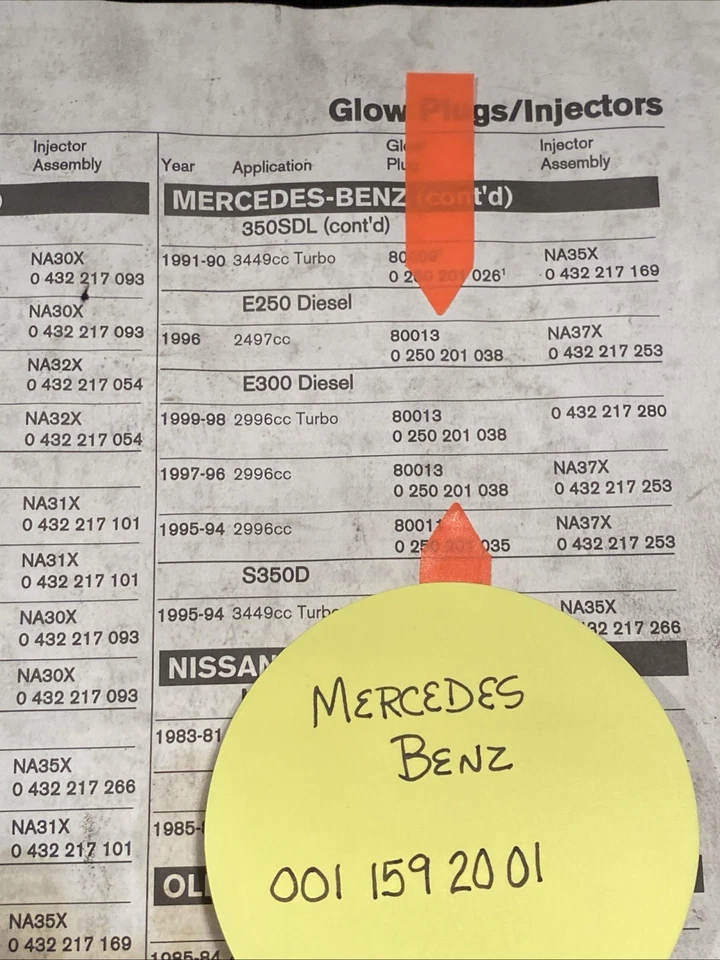 Glow Plugs/Injectors
Injector
Assembly
NA30X
0 432 217 093
NA30X
0 432 217 093
NA32X
0 432 217 054
NA32X
0 432 217 054
NA31X
0 432 217 101
NA31X
0 432 217 101
NA30X
0 432 217 093
NA30X
0 432 217 093
NA35X
0 432 217 266
NA31X
0 432 217 101
NA35X
0 432 217 169
Year Application Glow Plug Injector Assembly
MERCEDES-BENZ (cont'd)
350SDL (cont'd)
1991-90 3449cc Turbo NA35X
0 250 201 026¹ 0 432 217 169
E250 Diesel
1996 2497cc 80013 NA37X
0 250 201 038 0 432 217 253
E300 Diesel
1999-98 2996cc Turbo 80013 0 432 217 280
0 250 201 038
1997-96 2996cc 80013 NA37X
0 250 201 038 0 432 217 253
1995-94 2996cc 80011 NA37X
0 250 201 035 0 432 217 253
S350D
1995-94 3449cc Turbo NA35X
32 217 266
NISSAN
1983-81
1985-
OL
1985-84
MERCEDES
BENZ
001 159 20 01